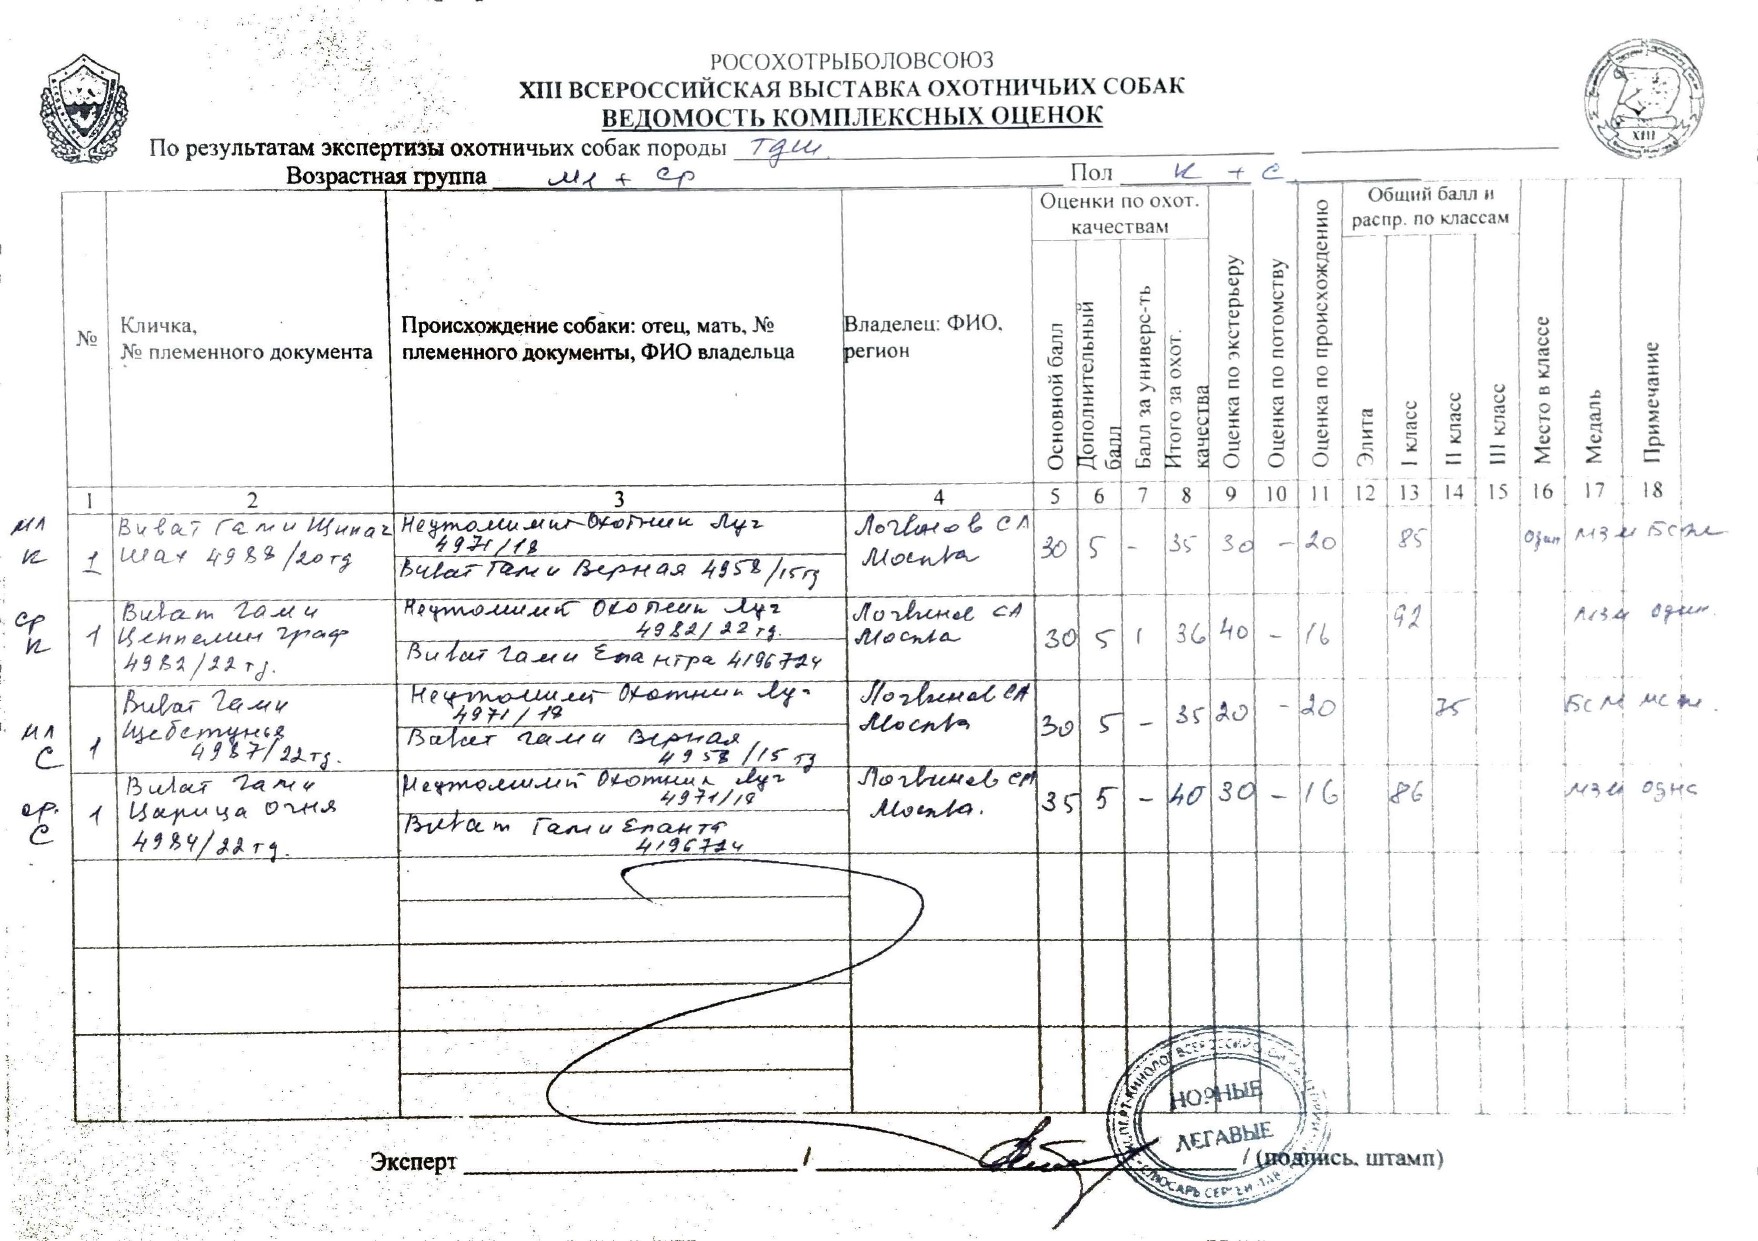 РОСОХОТРЫБОЛОВСОЮЗ
XIII ВСЕРОССИЙСКАЯ ВЫСТАВКА ОХОТНИЧЬИХ СОБАК
ВЕДОМОСТЬ КОМПЛЕКСНЫХ ОЦЕНОК
XIII
По результатам экспертизы охотничьих собак породы тдш
Возрастная группа мл + ср Пол К + С
№
Кличка,
№ племенного документа
Происхождение собаки: отец, мать, №
племенного документы, ФИО владельца
Владелец: ФИО,
регион
Оценки по охот.
качествам
Основной балл
Дополнительный
балл
Балл за универс-ть
Итого за охот.
качества
Оценка по экстерьеру
Оценка по потомству
Оценка по происхождению
Общий балл и
распр. по классам
Элита
I класс
II класс
III класс
Место в классе
Медаль
Примечание
1 2 3 4 5 6 7 8 9 10 11 12 13 14 15 16 17 18
мл
К
1
Виват Гами Щипач
Шах 4988/20тд
Неутомимый Охотник Луг
4971/18
Виват Гами Верная 4958/15тд
Логвинов СА
Москва
30 5 - 35 30 - 20 85 Один МЗМ БСМ
ср
К
1
Виват Гами
Цеппелин граф
4982/22тд.
Неутомимый Охотник Луг
4982/22тд.
Виват Гами Елантра 4196724
Логвинов СА
Москва
30 5 1 36 40 - 16 92 МЗМ один.
мл
С
1
Виват Гами
Щебетунья
4987/22тд.
Неутомимый Охотник Луг
4971/18
Виват Гами Верная
4958/15тд
Логвинов СА
Москва
30 5 - 35 20 - 20 75 БСМ
ср.
С
1
Виват Гами
Царица Огня
4984/22тд.
Неутомимый Охотник Луг
4971/18
Виват Гами Елантра
4196724
Логвинов СА
Москва.
35 5 - 40 30 - 16 86 МЗМ одна
НОРНЫЕ
ЛЕГАВЫЕ
Эксперт / / (подпись, штамп)